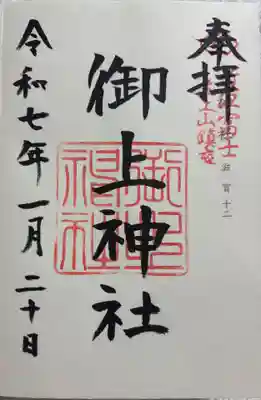 奉拝
御上神社
令和七年一月二十日